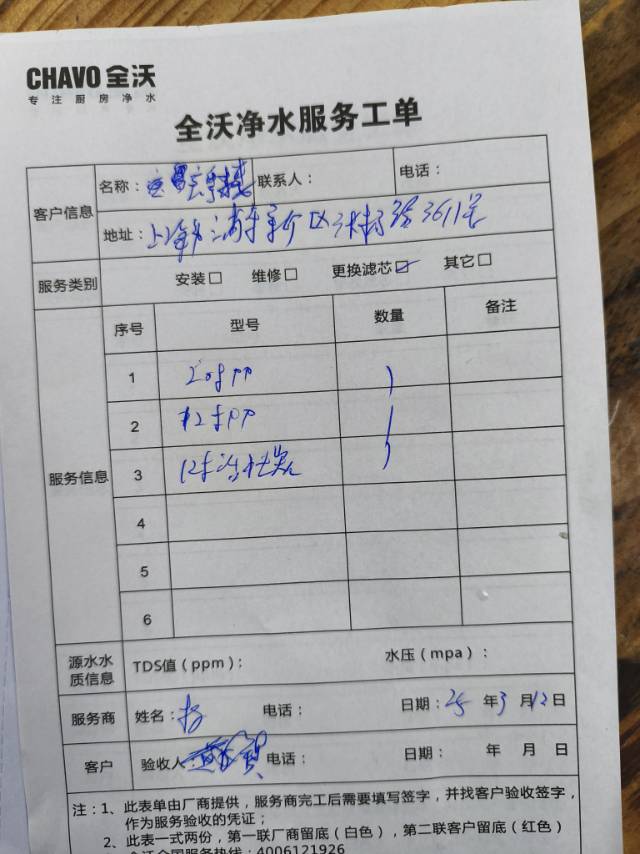 CHAVO 全沃
专注厨房净水
全沃净水服务工单
客户信息
名称： 联系人： 电话：
地址：上海市浦东新区 3611号
服务类别 安装□ 维修□ 更换滤芯☑ 其它□
服务信息
序号 型号 数量 备注
1 20寸pp 1
2 12寸pp 1
3 12寸活性炭 1
4
5
6
源水水质信息 TDS值（ppm）； 水压（mpa）：
服务商 姓名： 电话： 日期：25年3月12日
客户 验收人： 电话： 日期： 年 月 日
注：1、此表单由厂商提供，服务商完工后需要填写签字，并找客户验收签字，
作为服务验收的凭证；
2、此表一式两份，第一联厂商留底（白色），第二联客户留底（红色）
全沃全国服务热线：4006121926